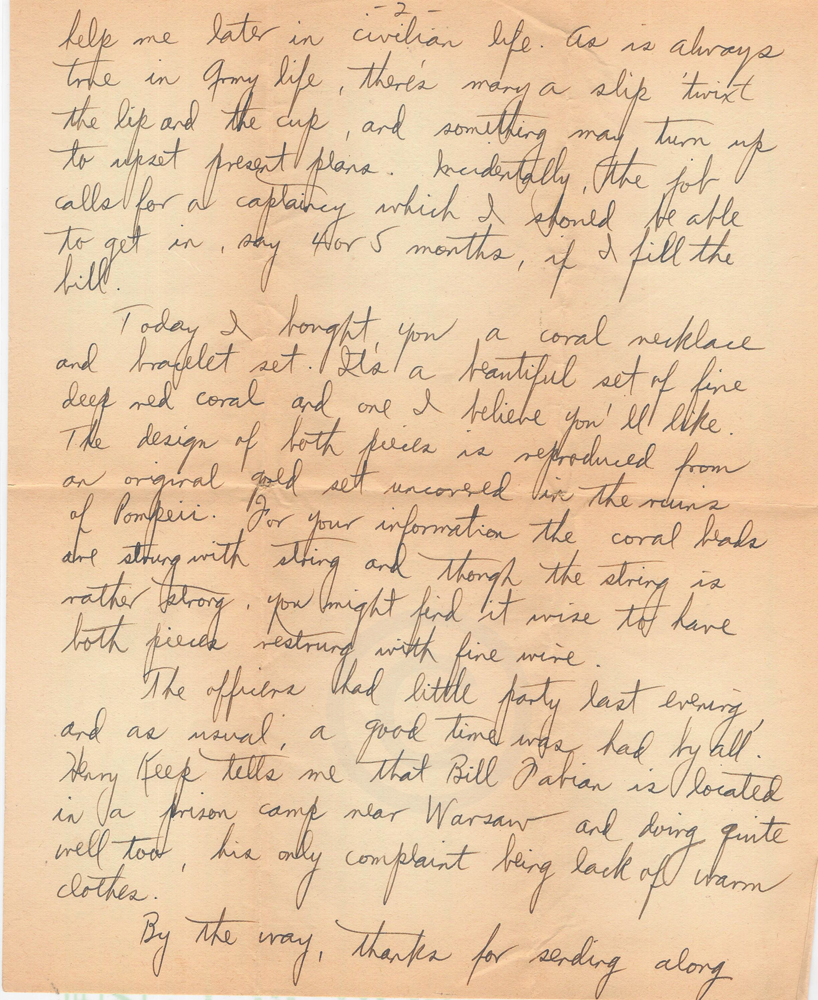 - 2 -
help me later in civilian life. As is always
true in Army life, there's many a slip 'twixt
the lip and the cup, and something may turn up
to upset present plans. Incidentally, the job
calls for a captaincy which I should be able
to get in, say 4 or 5 months, if I fill the
bill.
Today I bought you a coral necklace
and bracelet set. It's a beautiful set of fine
deep red coral and one I believe you'll like.
The design of both pieces is reproduced from
an original gold set uncovered in the ruins
of Pompeii. For your information the coral beads
are strung with string and though the string is
rather strong, you might find it wise to have
both pieces restrung with fine wire.
The officers had little party last evening,
and as usual, a good time was had by all.
Henry Keep tells me that Bill Fabian is located
in a prison camp near Warsaw and doing quite
well too, his only complaint being lack of warm
clothes.
By the way, thanks for sending along